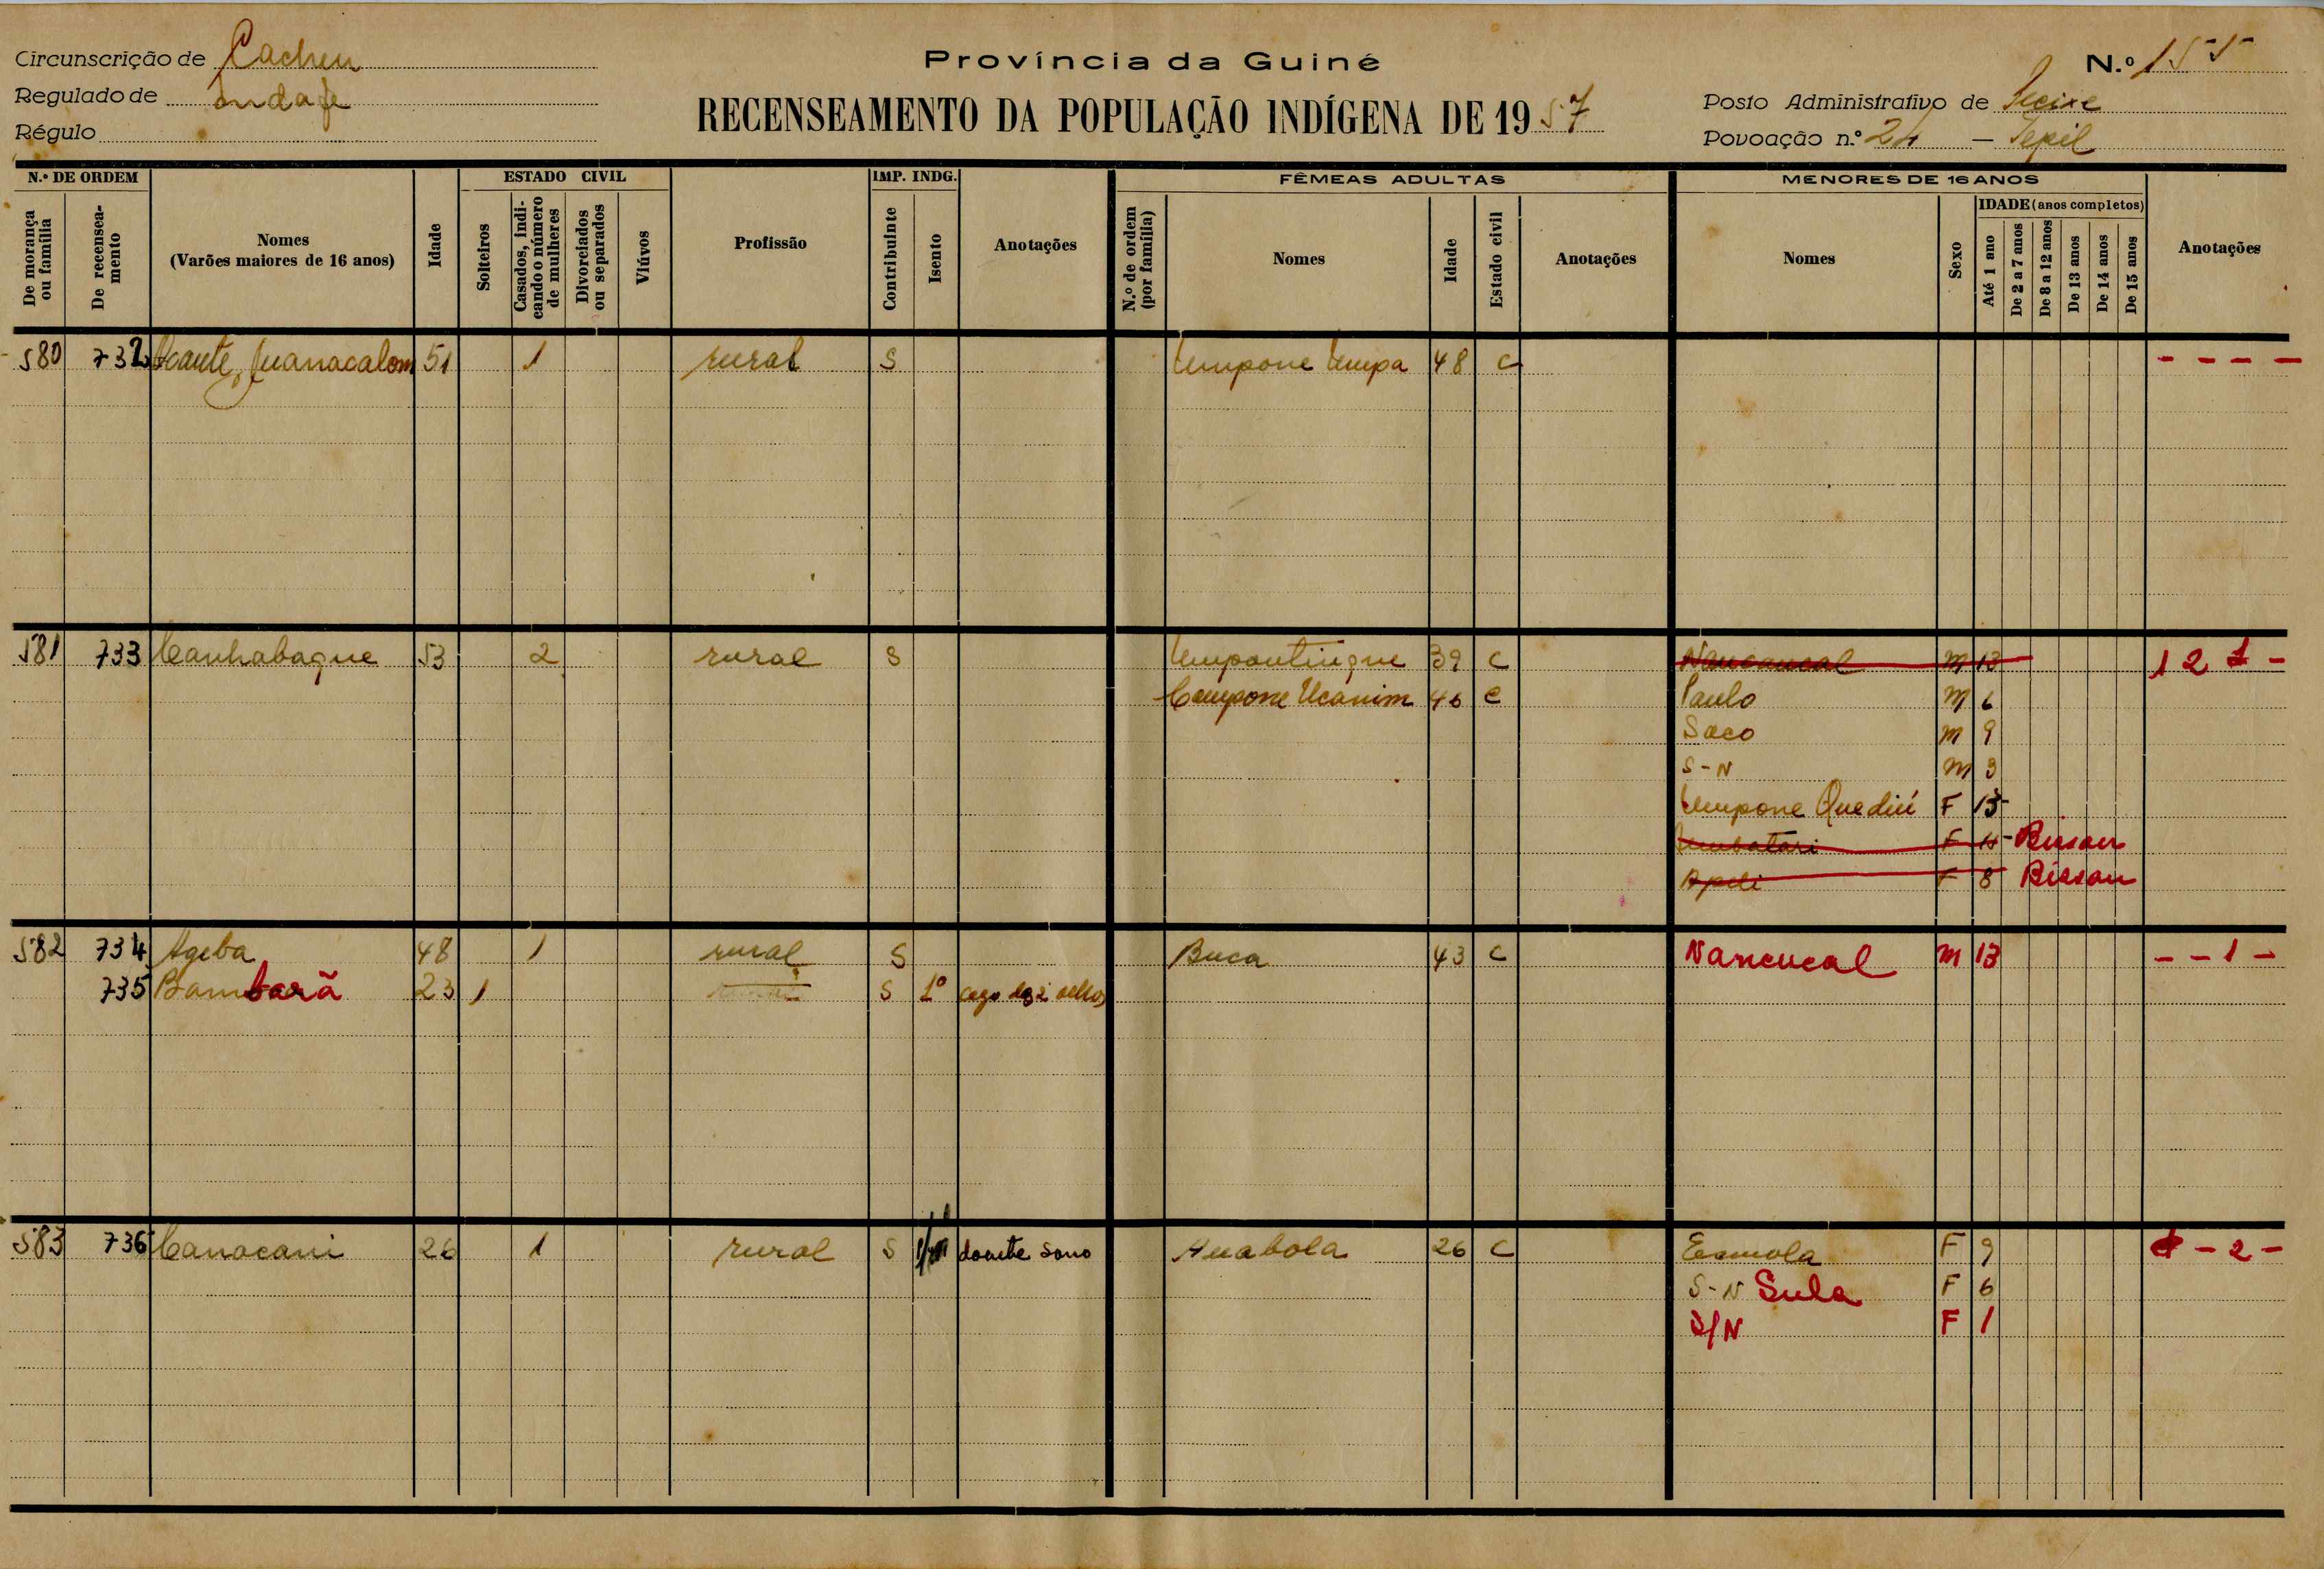 Circunscrição de Cacheu
Província da Guiné
N.º 155
Regulado de
RECENSEAMENTO DA POPULAÇÃO INDÍGENA DE 1957
Posto Administrativo de
Régulo
Povoação n.º 24 — Tepil
N.º DE ORDEM
ESTADO CIVIL
IMP. INDG.
FÊMEAS ADULTAS
MENORES DE 16 ANOS
De morança ou família
De recenseamento
Nomes (Varões maiores de 16 anos)
Idade
Solteiros
Casados, indicando o número de mulheres
Divorciados ou separados
Viúvos
Profissão
Contribuinte
Isento
Anotações
N.º de ordem (por família)
Nomes
Idade
Estado civil
Anotações
Nomes
Sexo
IDADE (anos completos)
Até 1 ano
De 2 a 7 anos
De 8 a 12 anos
De 13 anos
De 14 anos
De 15 anos
Anotações
580 732 51 1 rural S Umpone Umpa 48 C - - - -
581 733 Canhabaque 53 2 rural S Umpontinque 39 C M 13 1 2 1 -
Campone Ucanim 46 C Paulo M 6
Saco M 9
S-N M 3
Umpone Quediú F 15
F Bissau
F 8 Bissau
582 734 Ageba 48 1 rural S Buca 43 C Nancucal M 13 - - 1 -
735 Bambarã 23 1 S 1º cego dos 2 olhos
583 736 Canacani 26 1 rural S doente sono 26 C F 9 - 2 -
S-N Sula F 6
S/N F 1